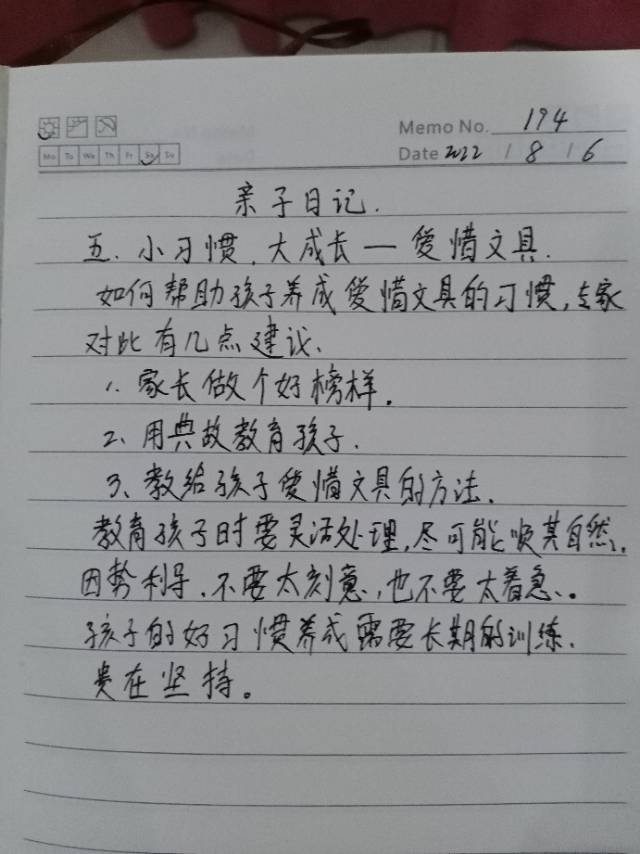 Memo No. 194
Mo Tu We Th Fr Sa Su
Date 2022 / 8 / 6
亲子日记.
五.小习惯,大成长—爱惜文具.
如何帮助孩子养成爱惜文具的习惯,专家
对此有几点建议、
1、家长做个好榜样.
2、用典故教育孩子.
3、教给孩子爱惜文具的方法.
教育孩子时要灵活处理,尽可能顺其自然,
因势利导、不要太刻意,也不要太着急。
孩子的好习惯养成需要长期的训练.
贵在坚持。